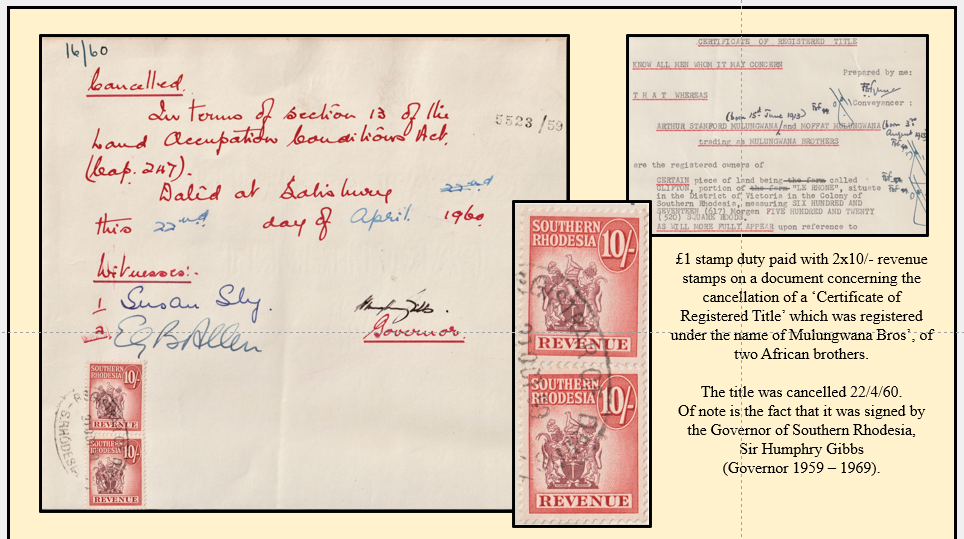 16/60
Cancelled.
In terms of section 13 of the
Land Occupation Conditions Act,
(Cap. 247).
Dated at Salisbury 22nd
this 22nd day of April 1960
5523/59
Witnesses:-
1 Susan Sly.
2 B Allen
Humphrey Gibbs.
Governor.
SOUTHERN
RHODESIA 10/-
REVENUE
SOUTHERN
RHODESIA 10/-
REVENUE
SOUTHERN
RHODESIA 10/-
REVENUE
SOUTHERN
RHODESIA 10/-
REVENUE
CERTIFICATE OF REGISTERED TITLE
KNOW ALL MEN WHOM IT MAY CONCERN
Prepared by me:
Conveyancer:
T H A T WHEREAS
(born 15th June 1913) (born 3rd
August
ARTHUR STANFORD MULUNGWANA and MOFFAT MULUNGWANA
trading as MULUNGWANA BROTHERS
are the registered owners of
CERTAIN piece of land being the farm called
CLIFTON, portion of the farm "LE RHONE", situate
in the District of Victoria in the Colony of
Southern Rhodesia, measuring SIX HUNDRED AND
SEVENTEEN (617) Morgen FIVE HUNDRED AND TWENTY
(520) SQUARE ROODS.
AS WILL MORE FULLY APPEAR upon reference to
£1 stamp duty paid with 2x10/- revenue
stamps on a document concerning the
cancellation of a ‘Certificate of
Registered Title’ which was registered
under the name of Mulungwana Bros’, of
two African brothers.
The title was cancelled 22/4/60.
Of note is the fact that it was signed by
the Governor of Southern Rhodesia,
Sir Humphry Gibbs
(Governor 1959 – 1969).